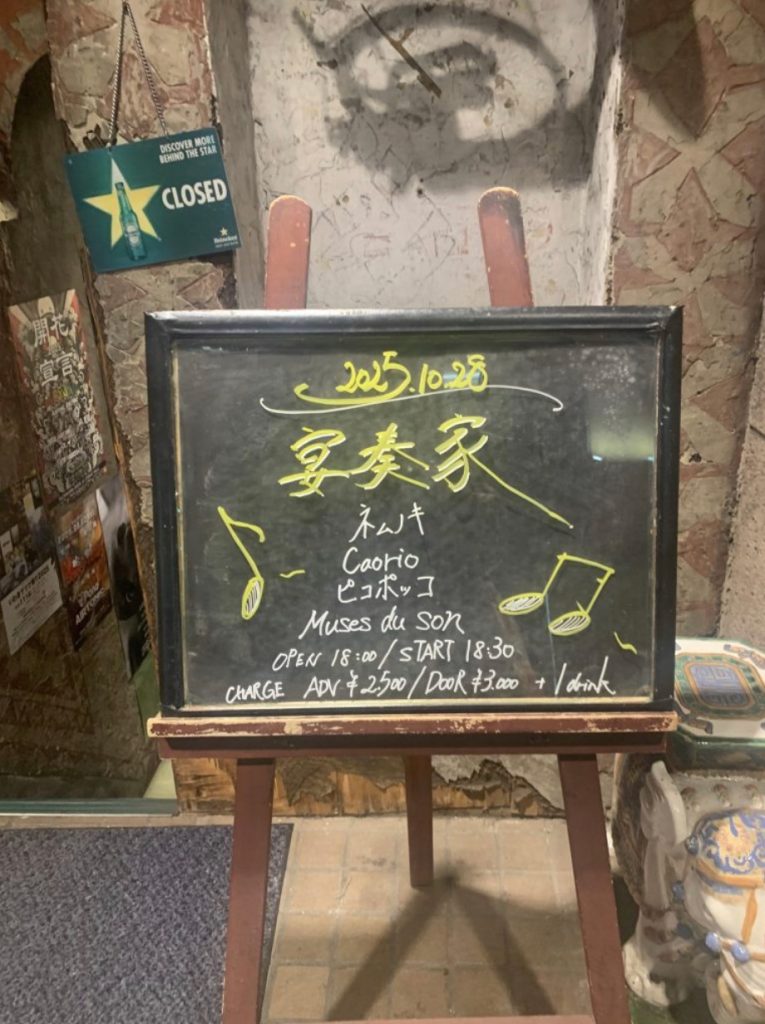 DISCOVER MORE
BEHIND THE STAR
CLOSED
Heineken
開花
宣言
2025.10.28
宴奏家
ネムノキ
Caorio
ピコポッコ
Muses du son
OPEN 18:00 / START 18:30
CHARGE ADV ¥2.500 / DOOR ¥3.000 + 1 drink